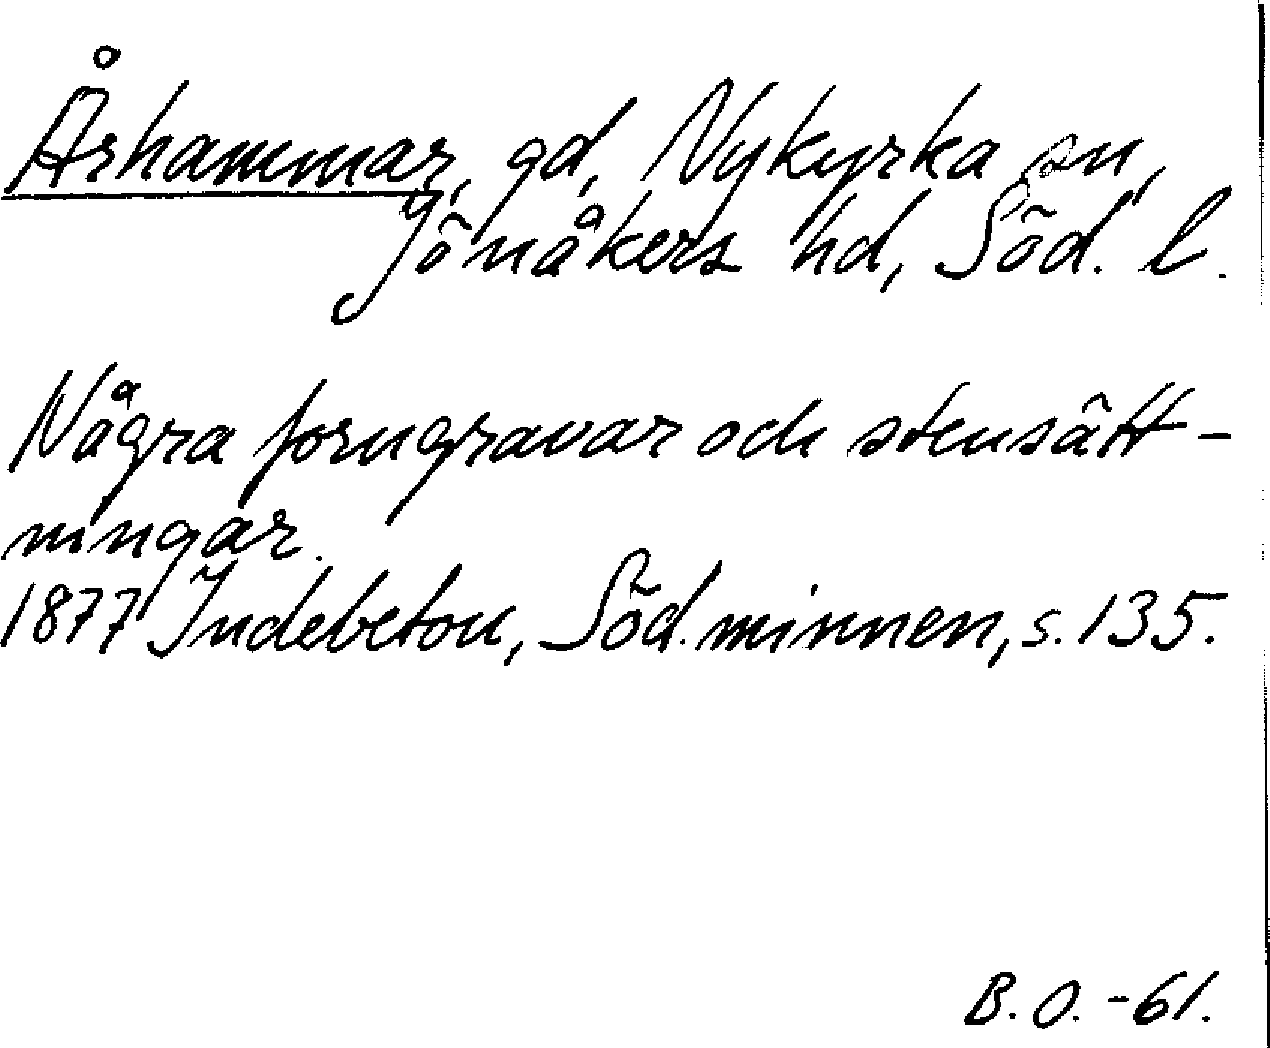 Århammar, gd, Nykyrka sn,
Jönåkers hd, Söd. l.
Några forngravar och stensätt-
ningar.
1877 Indebetou, Söd. minnen, s. 135.
B. O. -61.